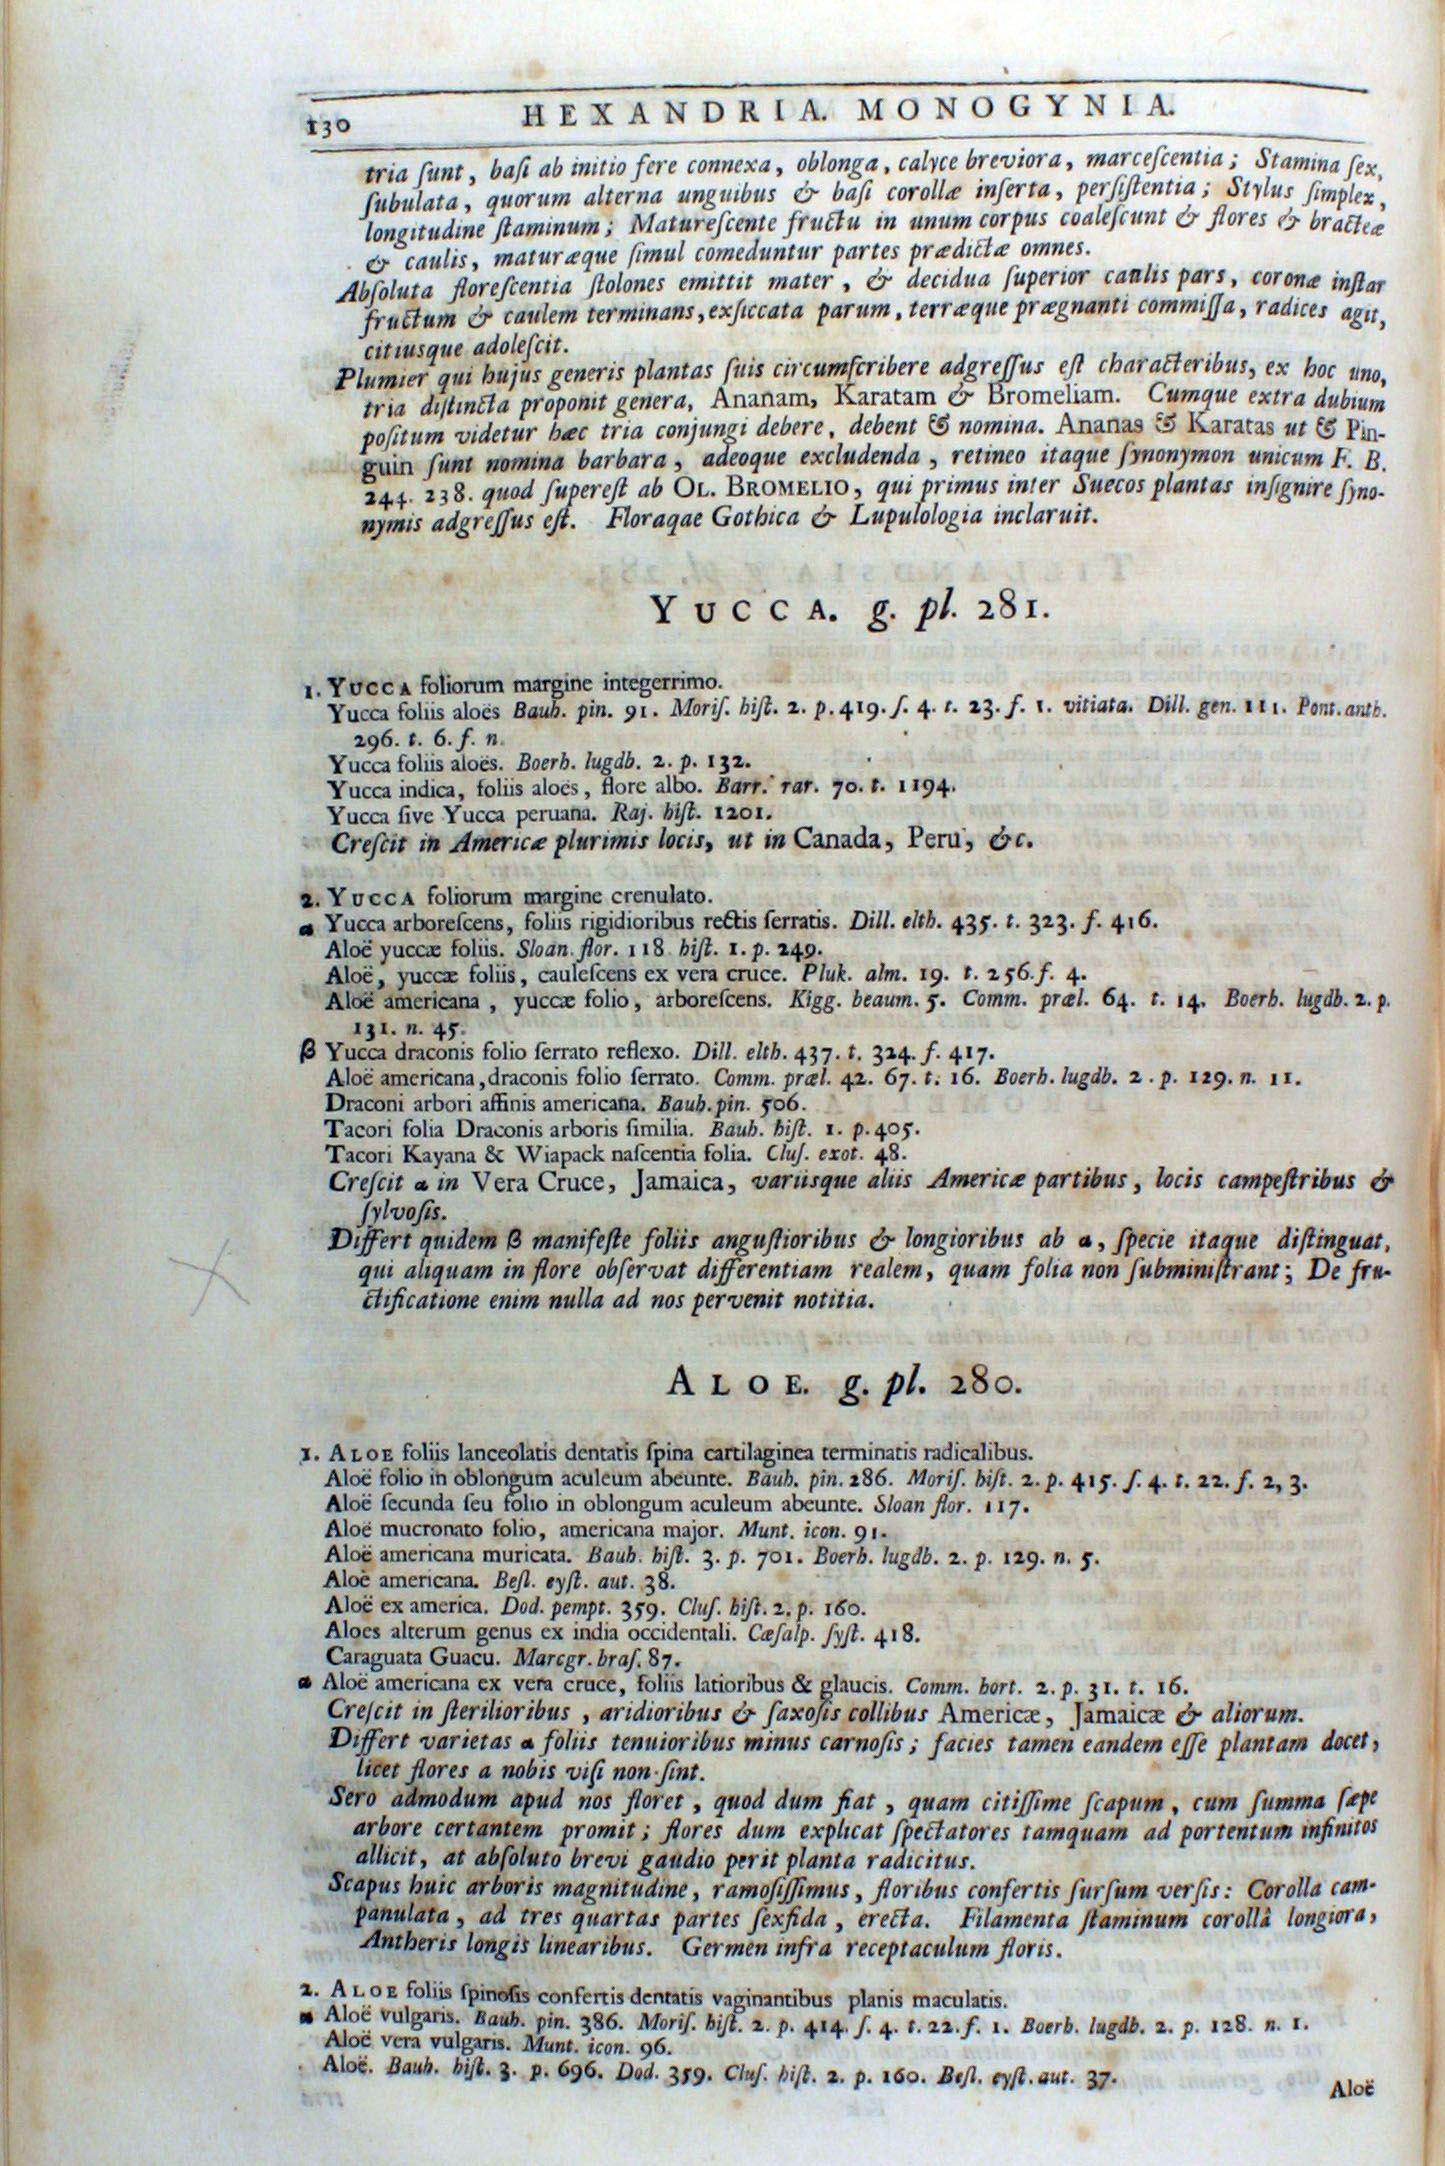 130
HEXANDRIA. MONOGYNIA.
tria ſunt, baſi ab initio fere connexa, oblonga, calyce breviora, marceſcentia; Stamina ſex,
ſubulata, quorum alterna unguibus & baſi corollæ inſerta, perſiſtentia; Stylus ſimplex,
longitudine ſtaminum; Matureſcente fructu in unum corpus coaleſcunt & flores & bracteæ
& caulis, maturæque ſimul comeduntur partes prædictæ omnes.
Abſoluta floreſcentia ſtolones emittit mater, & decidua ſuperior caulis pars, coronæ inſtar
fructum & caulem terminans, exſiccata parum, terræque prægnanti commiſſa, radices agit,
citiusque adoleſcit.
Plumier qui hujus generis plantas ſuis circumſcribere adgreſſus eſt characteribus, ex hoc uno,
tria diſtincta proponit genera, Ananam, Karatam & Bromeliam. Cumque extra dubium
poſitum videtur hæc tria conjungi debere, debent & nomina. Ananas & Karatas ut & Pin-
guin ſunt nomina barbara, adeoque excludenda, retineo itaque ſynonymon unicum F. B.
244. 238. quod ſupereſt ab OL. BROMELIO, qui primus inter Suecos plantas inſignire ſyno-
nymis adgreſſus eſt. Floraqae Gothica & Lupulologia inclaruit.
YUCCA. g. pl. 281.
1. YUCCA foliorum margine integerrimo.
Yucca foliis aloës Bauh. pin. 91. Moriſ. hiſt. 2. p. 419. ſ. 4. t. 23. f. 1. vitiata. Dill. gen. 111. Pont. anth.
296. t. 6. f. n.
Yucca foliis aloës. Boerh. lugdb. 2. p. 132.
Yucca indica, foliis aloës, flore albo. Barr. rar. 70. t. 1194.
Yucca ſive Yucca peruana. Raj. hiſt. 1201.
Creſcit in Americæ plurimis locis, ut in Canada, Peru, &c.
2. YUCCA foliorum margine crenulato.
α Yucca arboreſcens, foliis rigidioribus rectis ſerratis. Dill. elth. 435. t. 323. f. 416.
Aloë yuccæ foliis. Sloan. flor. 118 hiſt. 1. p. 249.
Aloë, yuccæ foliis, cauleſcens ex vera cruce. Pluk. alm. 19. t. 256. f. 4.
Aloë americana, yuccæ folio, arboreſcens. Kigg. beaum. 5. Comm. præl. 64. t. 14. Boerh. lugdb. 2. p.
131. n. 45.
β Yucca draconis folio ſerrato reflexo. Dill. elth. 437. t. 324. f. 417.
Aloë americana, draconis folio ſerrato. Comm. præl. 42. 67. t. 16. Boerh. lugdb. 2. p. 129. n. 11.
Draconi arbori affinis americana. Bauh. pin. 506.
Tacori folia Draconis arboris ſimilia. Bauh. hiſt. 1. p. 405.
Tacori Kayana & Wiapack naſcentia folia. Cluſ. exot. 48.
Creſcit α in Vera Cruce, Jamaica, variisque aliis Americæ partibus, locis campeſtribus &
ſylvoſis.
Differt quidem β manifeſte foliis anguſtioribus & longioribus ab α, ſpecie itaque diſtinguat,
qui aliquam in flore obſervat differentiam realem, quam folia non ſubminiſtrant; De fru-
ctificatione enim nulla ad nos pervenit notitia.
ALOE. g. pl. 280.
1. ALOE foliis lanceolatis dentatis ſpina cartilaginea terminatis radicalibus.
Aloë folio in oblongum aculeum abeunte. Bauh. pin. 286. Moriſ. hiſt. 2. p. 415. ſ. 4. t. 22. f. 2, 3.
Aloë ſecunda ſeu folio in oblongum aculeum abeunte. Sloan flor. 117.
Aloë mucronato folio, americana major. Munt. icon. 91.
Aloë americana muricata. Bauh. hiſt. 3. p. 701. Boerh. lugdb. 2. p. 129. n. 5.
Aloë americana. Beſl. eyſt. aut. 38.
Aloë ex america. Dod. pempt. 359. Cluſ. hiſt. 2. p. 160.
Aloes alterum genus ex india occidentali. Cæſalp. ſyſt. 418.
Caraguata Guacu. Marcgr. braſ. 87.
α Aloë americana ex vera cruce, foliis latioribus & glaucis. Comm. hort. 2. p. 31. t. 16.
Creſcit in ſterilioribus, aridioribus & ſaxoſis collibus Americæ, Jamaicæ & aliorum.
Differt varietas α foliis tenuioribus minus carnoſis; facies tamen eandem eſſe plantam docet,
licet flores a nobis viſi non ſint.
Sero admodum apud nos floret, quod dum fiat, quam citiſſime ſcapum, cum ſumma ſæpe
arbore certantem promit; flores dum explicat ſpectatores tamquam ad portentum infinitos
allicit, at abſoluto brevi gaudio perit planta radicitus.
Scapus huic arboris magnitudine, ramoſiſſimus, floribus confertis ſurſum verſis: Corolla cam-
panulata, ad tres quartas partes ſexfida, erecta. Filamenta ſtaminum corollâ longiora,
Antheris longis linearibus. Germen infra receptaculum floris.
2. ALOE foliis ſpinoſis confertis dentatis vaginantibus planis maculatis.
α Aloë vulgaris. Bauh. pin. 386. Moriſ. hiſt. 2. p. 414. ſ. 4. t. 22. f. 1. Boerh. lugdb. 2. p. 128. n. 1.
Aloë vera vulgaris. Munt. icon. 96.
Aloë. Bauh. hiſt. 3. p. 696. Dod. 359. Cluſ. hiſt. 2. p. 160. Beſl. eyſt. aut. 37.
Aloë